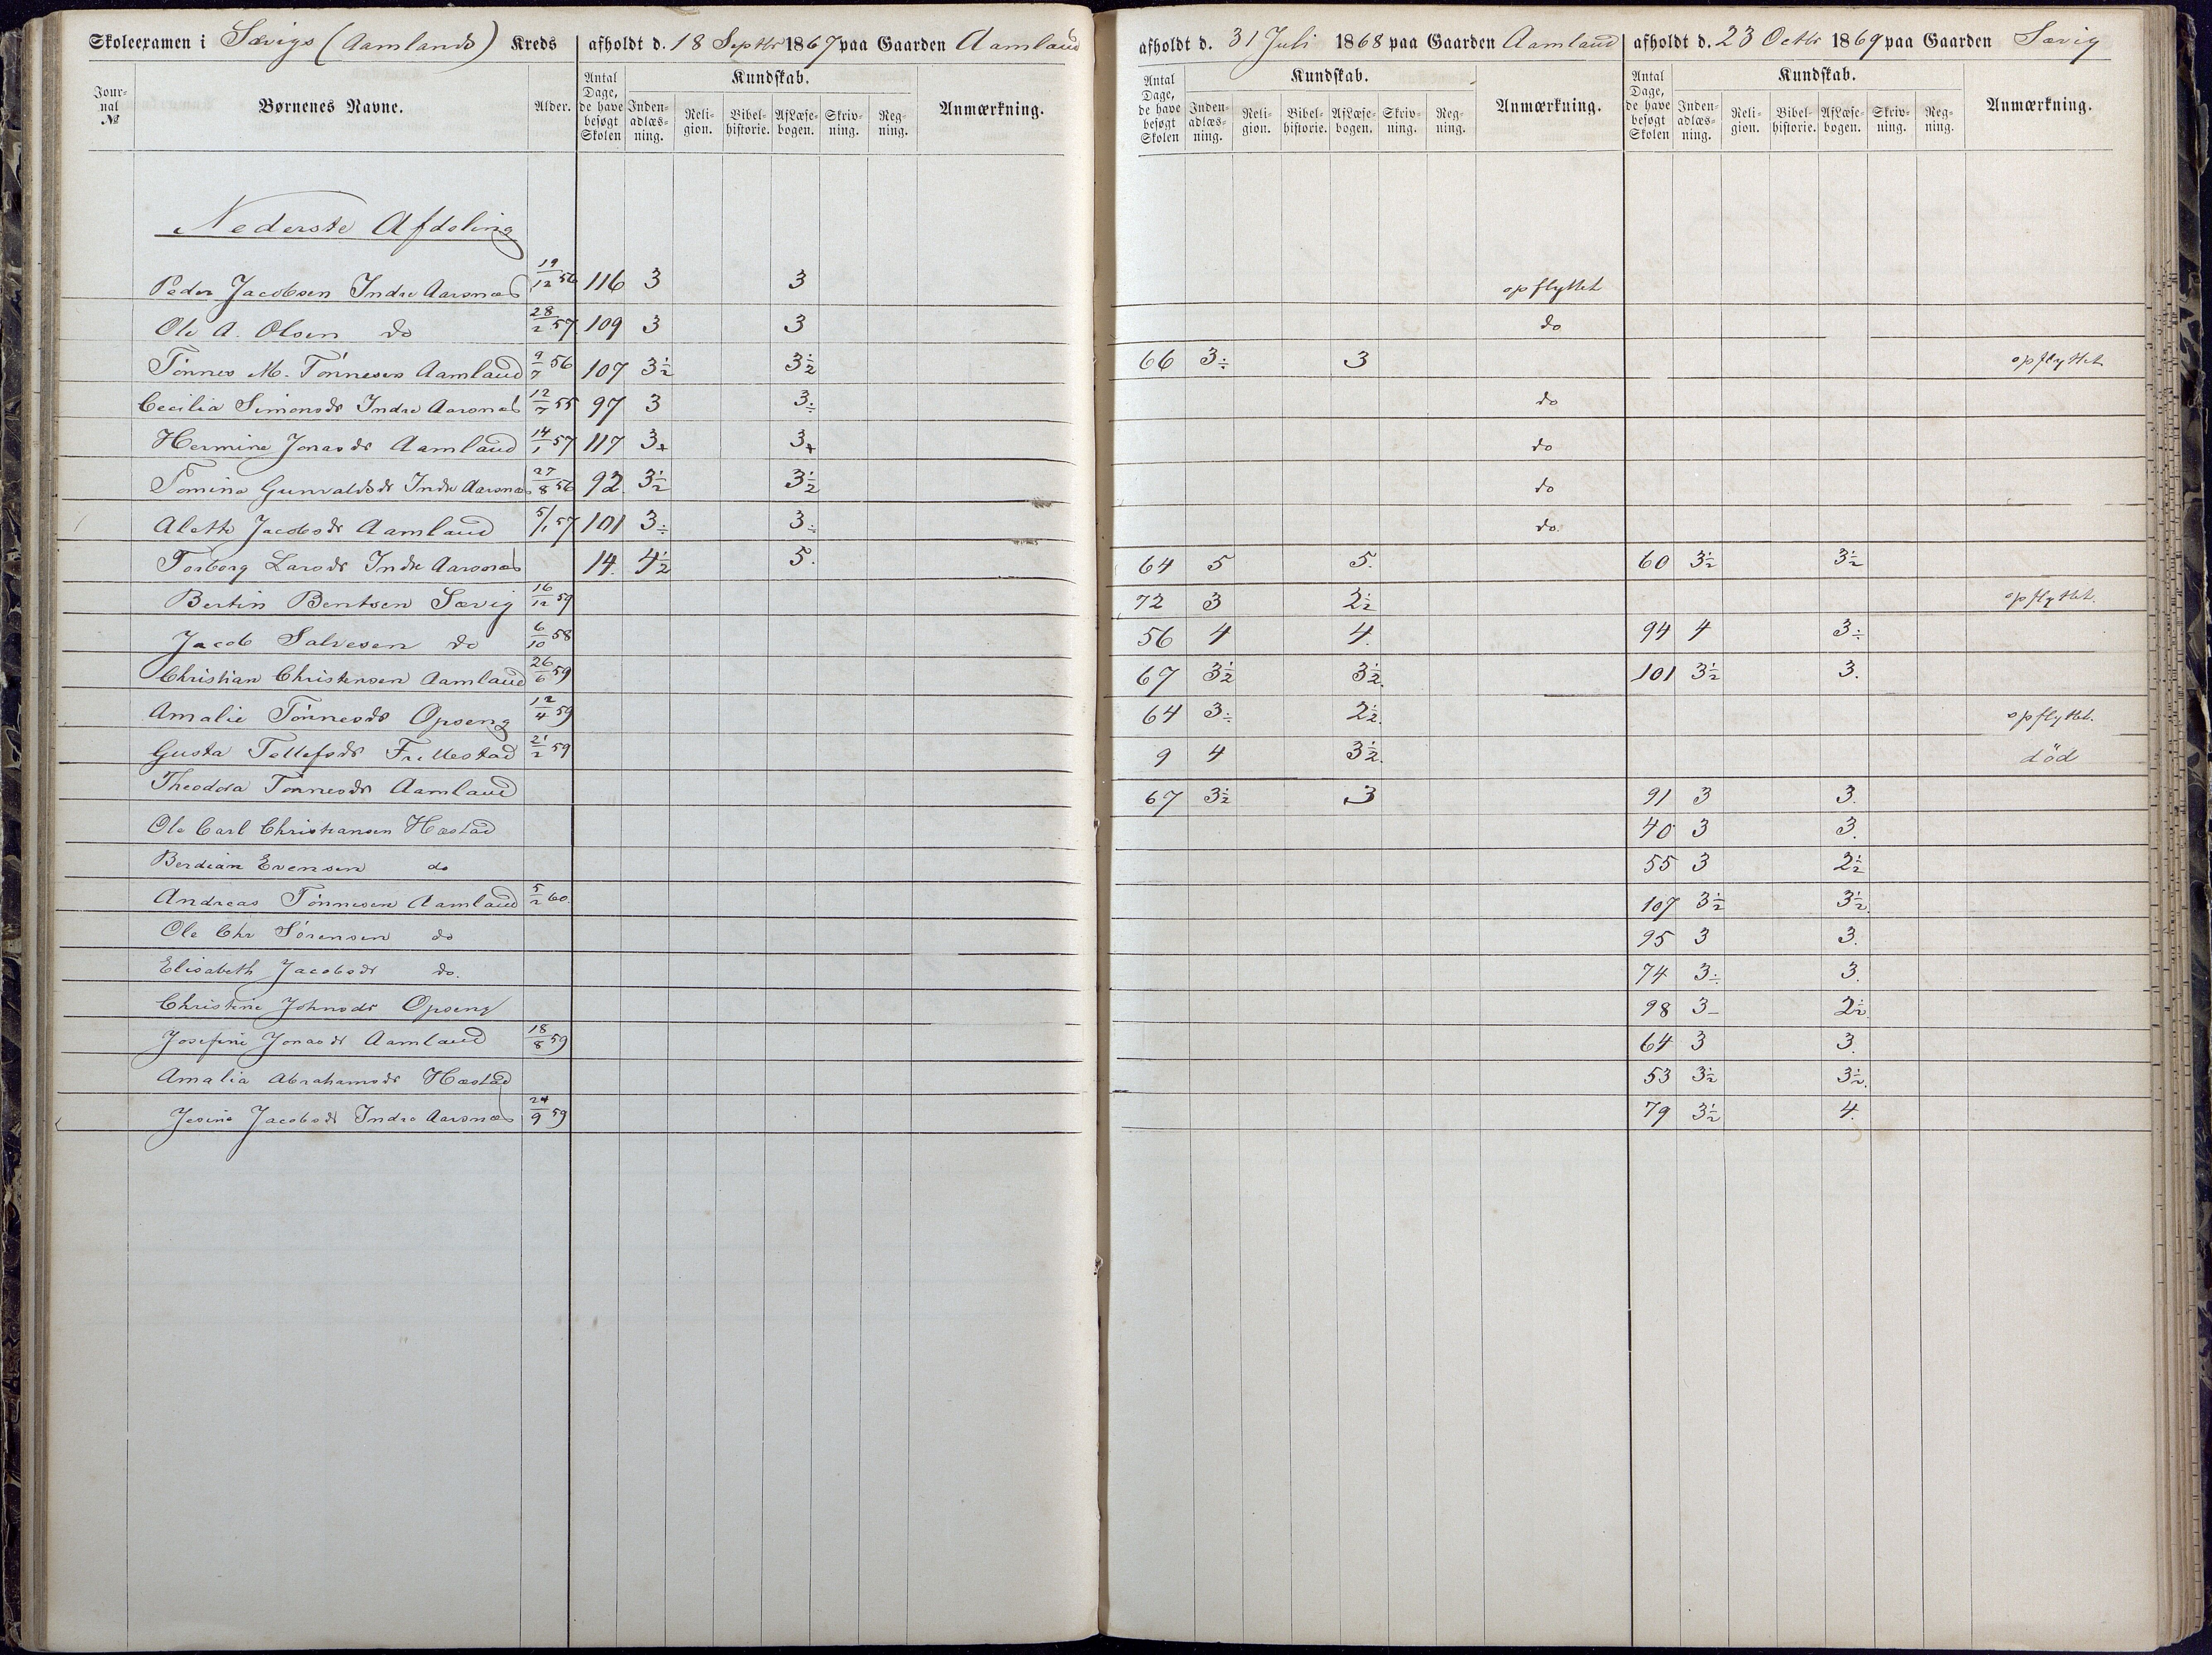 Skoleexamen i Sævigs (Aamlands) Kreds afholdt d. 18 Septbr 1867 paa Gaarden Aamland afholdt d. 31 Juli 1868 paa Gaarden Aamland afholdt d. 23 Octbr 1869 paa Gaarden Sævig
Journal № Børnenes Navne. Alder. Antal Dage, de have besøgt Skolen Kundskab. Indenadlæsning. Religion. Bibelhistorie. AfLæsebogen. Skrivning. Regning. Anmærkning. Antal Dage, de have besøgt Skolen Kundskab. Indenadlæsning. Religion. Bibelhistorie. AfLæsebogen. Skrivning. Regning. Anmærkning. Antal Dage, de have besøgt Skolen Kundskab. Indenadlæsning. Religion. Bibelhistorie. AfLæsebogen. Skrivning. Regning. Anmærkning.
Nederste Afdeling
Peder Jacobsen Indre Aarsnes 19/12 56 116 3 3 opflyttet
Ole A. Olsen do 28/2 57 109 3 3 do
Tönnes M. Tönnesen Aamland 9/7 56 107 3½ 3½ 66 3÷ 3 opflyttet
Cecilia Simonsdr Indre Aarsnes 12/7 55 97 3 3÷ do
Hermine Jonasdr Aamland 14/1 57 117 3+ 3+ do
Tomine Gunvaldsdr Indre Aarsnes 27/8 56 92 3½ 3½ do
Alethe Jacobsdr Aamland 5/1 57 101 3÷ 3÷ do
Torborg Larsdr Indre Aarsnes 14. 4½ 5. 64 5 5. 60 3½ 3½
Bertin Bentsen Sævig 16/12 59 72 3 2½ opflyttet.
Jacob Salvesen do 6/10 58 56 4 4. 94 4 3÷
Christian Christensen Aamland 26/6 59 67 3½ 3½. 101 3½ 3.
Amalie Tönnesdr Opseng 12/4 59 64 3÷ 2½. opflyttet.
Gusta Tellefsdr Frellestad 21/2 59 9 4 3½. död
Theodora Tönnesdr Aamland 67 3½ 3 91 3 3.
Ole Carl Christiansen Hæstad 40 3 3.
Berdian Evensen do 55 3 2½
Andreas Tönnesen Aamland 5/2 60. 107 3½ 3½.
Ole Chr Sörensen do 95 3 3.
Elisabeth Jacobsdr do. 74 3÷ 3.
Christine Johnsdr Opseng 98 3- 2½.
Josefine Jonasdr Aamland 18/8 59 64 3 3.
Amalia Abrahamsdr Hæstad 53 3½ 3½.
Jesine Jacobsdr Indre Aarsnes 24/9 59 79 3½ 4.